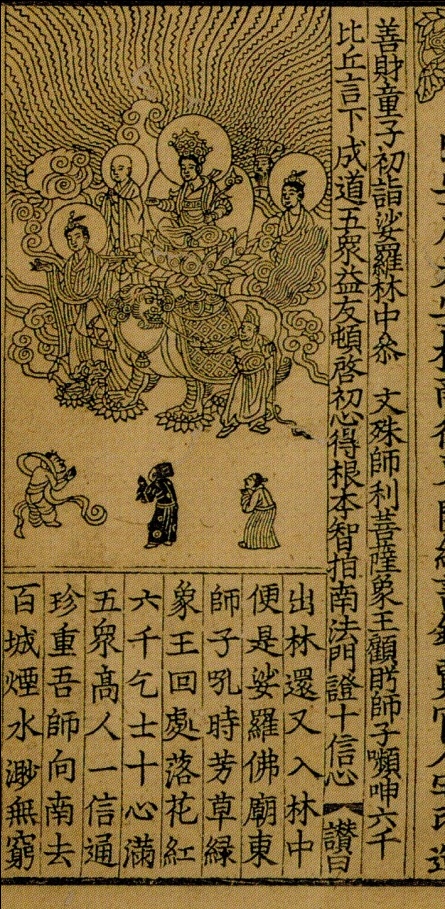 善財童子初詣娑羅林中叅　文殊師利菩薩象王顧眄師子嚬呻六千
比丘言下成道五眾益友頓啓初心得根本智指南法門證十信心【讃曰
出林還又入林中
便是娑羅佛廟東
師子吼時芳草緑
象王回處落花紅
六千乞士十心滿
五眾髙人一信通
珍重吾師向南去
百城煙水渺無窮